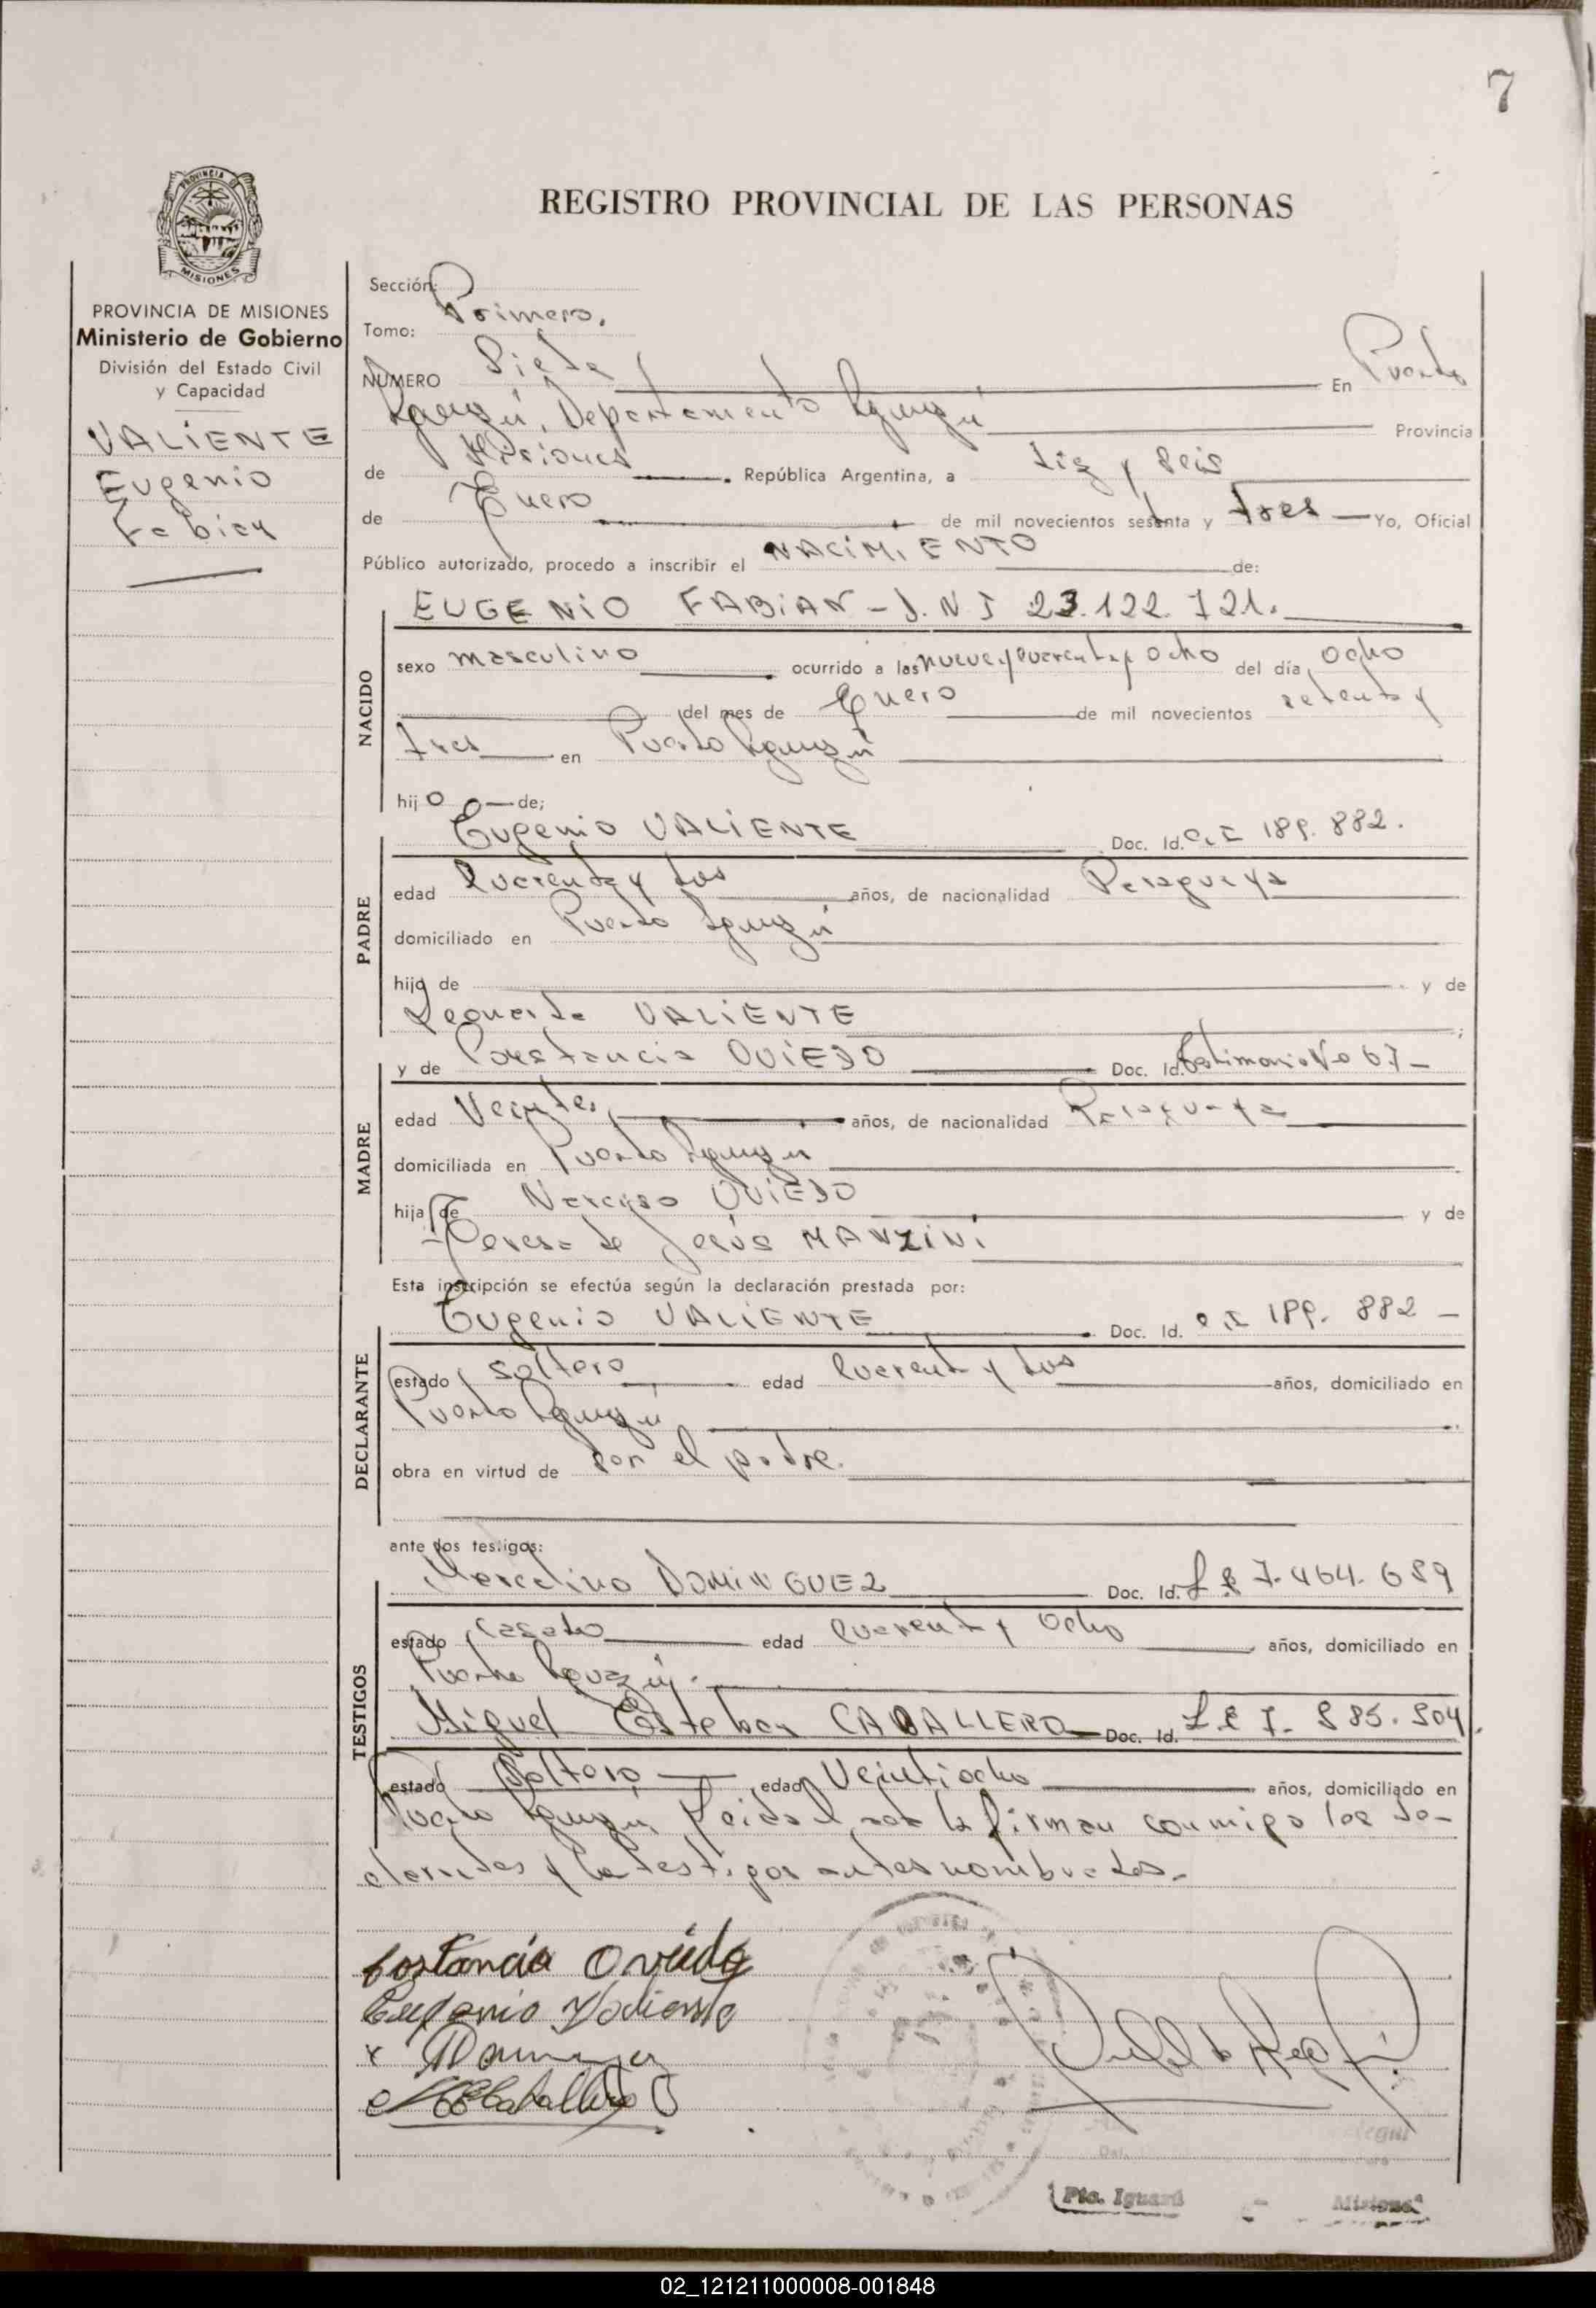 7
PROVINCIA DE MISIONES
REGISTRO PROVINCIAL DE LAS PERSONAS
PROVINCIA DE MISIONES
Ministerio de Gobierno
División del Estado Civil
y Capacidad
VALIENTE
Eugenio
Fabian
Sección:
Primero.
Tomo:
NUMERO Siete En Puerto
Iguazú, Departamento Iguazú Provincia
de Misiones República Argentina, a Diez y Seis
de Enero de mil novecientos setenta y tres Yo, Oficial
Público autorizado, procedo a inscribir el NACIMIENTO de:
NACIDO
EUGENIO FABIAN - D.N.I 23.122.721.
sexo masculino ocurrido a las nueve y cuarenta y ocho del día ocho
del mes de Enero de mil novecientos setenta y
tres en Puerto Iguazú
hijo de;
PADRE
Eugenio VALIENTE Doc. Id. C.I 189.882.
edad Cuarenta y dos años, de nacionalidad Paraguaya
domiciliado en Puerto Iguazú
hijo de y de
VALIENTE
MADRE
y de Costancia OVIEDO Doc. Id. Testimonio No 67-
edad años, de nacionalidad Paraguaya
domiciliada en Puerto Iguazú
hija de Narciso OVIEDO y de
Teresa de Jesús MANZINI
Esta inscripción se efectúa según la declaración prestada por:
DECLARANTE
Eugenio VALIENTE Doc. Id. C.I 189.882 -
estado soltero edad Cuarenta y dos años, domiciliado en
Puerto Iguazú
obra en virtud de ser el padre.
ante los testigos:
TESTIGOS
Marcelino DOMINGUEZ Doc. Id. L.E 7.464.689
estado Casado edad Cuarenta y ocho años, domiciliado en
Puerto Iguazú.
Miguel Esteban CABALLERO Doc. Id. L.E 7.885.504.
estado Soltero edad Veintiocho años, domiciliado en
Puerto Iguazú, Leida el acta la firman conmigo los de-
clarantes y los testigos antes nombrados.-
Costancia Oviedo
Eugenio Valiente
Caballero
Pto. Iguazú - Misiones
02_121211000008-001848